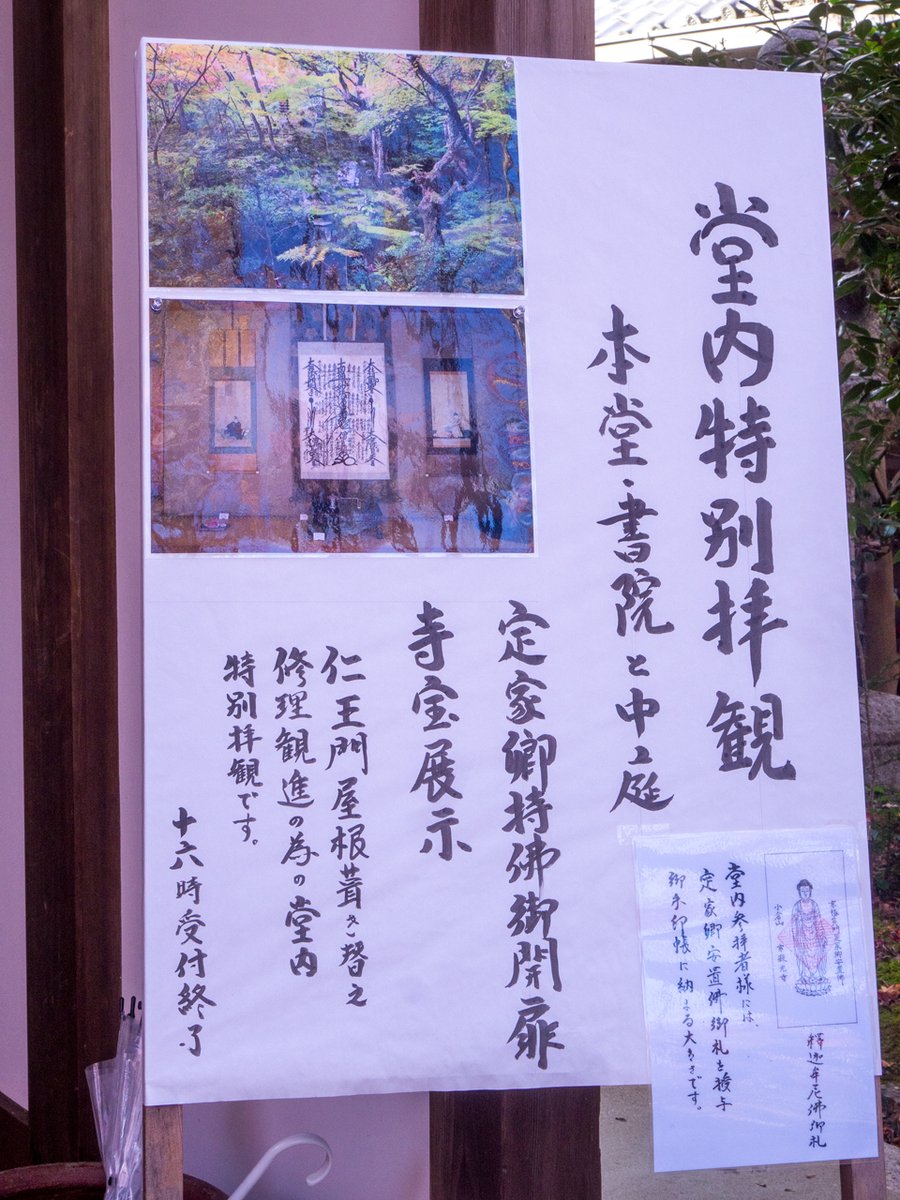 堂内特別拝観
本堂・書院と中庭
定家卿持佛御開扉
寺宝展示
仁王門屋根葺き替え
修理観進の為の堂内
特別拝観です。
十六時受付終了
釋迦牟尼佛御札
堂内参拝者様には、
定家卿安置佛御札を授与
御朱印帳に納まる大きさです。